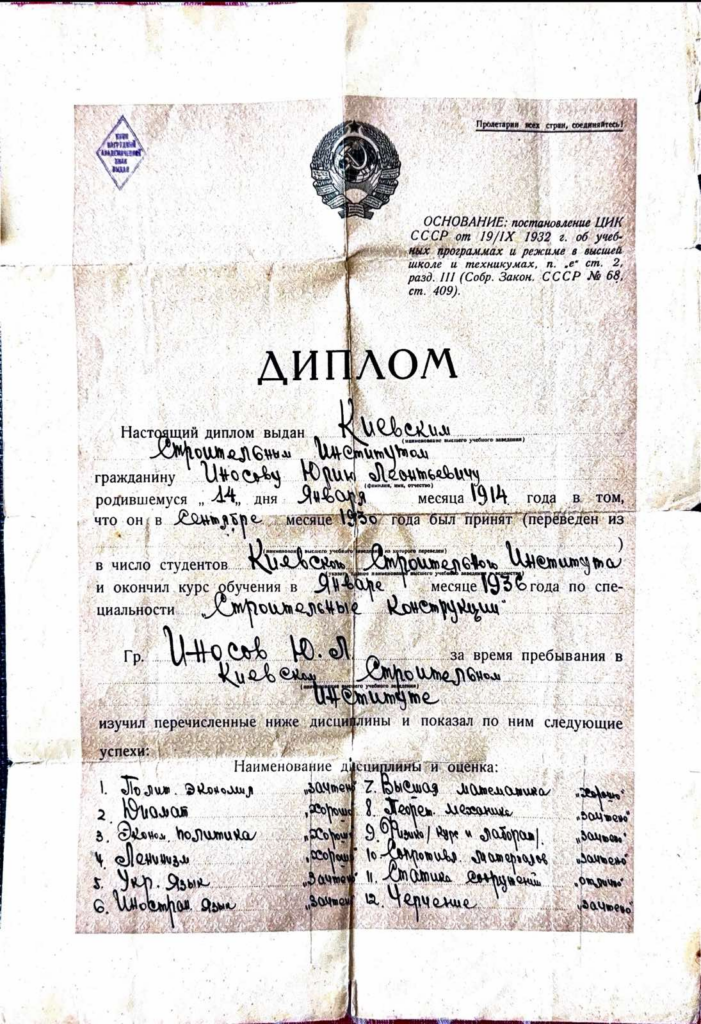 Пролетарии всех стран, соединяйтесь!
НАГРУДНЫЙ
АКАДЕМИЧЕСКИЙ
ЗНАК
ВЫДАН
ОСНОВАНИЕ: постановление ЦИК
СССР от 19/IX 1932 г. об учеб-
ных программах и режиме в высшей
школе и техникумах, п. „е“ ст. 2,
разд. III (Собр. Закон. СССР № 68,
ст. 409).
ДИПЛОМ
Настоящий диплом выдан Киевским
(наименование высшего учебного заведения)
Строительным Институтом
гражданину Иносову Юрию Леонтьевичу
(фамилия, имя, отчество)
родившемуся „14„ дня Января месяца 1914 года в том,
что он в Сентябре месяце 1930 года был принят (переведен из
)
(наименование высшего учебного заведения, из которого переведен)
в число студентов Киевского Строительного Института
и окончил курс обучения в Январе месяце 1936 года по спе-
циальности „Строительные Конструкции"
Гр. Иносов Ю. Л. за время пребывания в
Киевском Строительном
(наименование высшего учебного заведения)
Институте
изучил перечисленные ниже дисциплины и показал по ним следующие
успехи:
Наименование дисциплины и оценка:
1. Полит. экономия „зачтено
2. Диамат „хорошо
3. Эконом. политика „хорошо
4. Ленинизм „хорошо
5. Укр. язык „зачтено
6. Иностран. язык „зачтено
7. Высшая математика „хорошо"
8. Теорет. механика „зачтено
9. Физика/курс и лаборат/. „зачтено"
10. Сопротивл. материалов „зачтено"
11. Статика сооружений „отлично"
12. Черчение „зачтено"